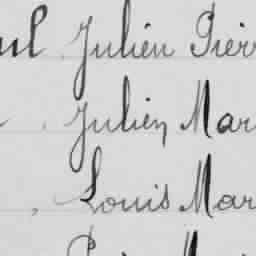 ul Julien Pier
Julien Mar
, Louis Mar